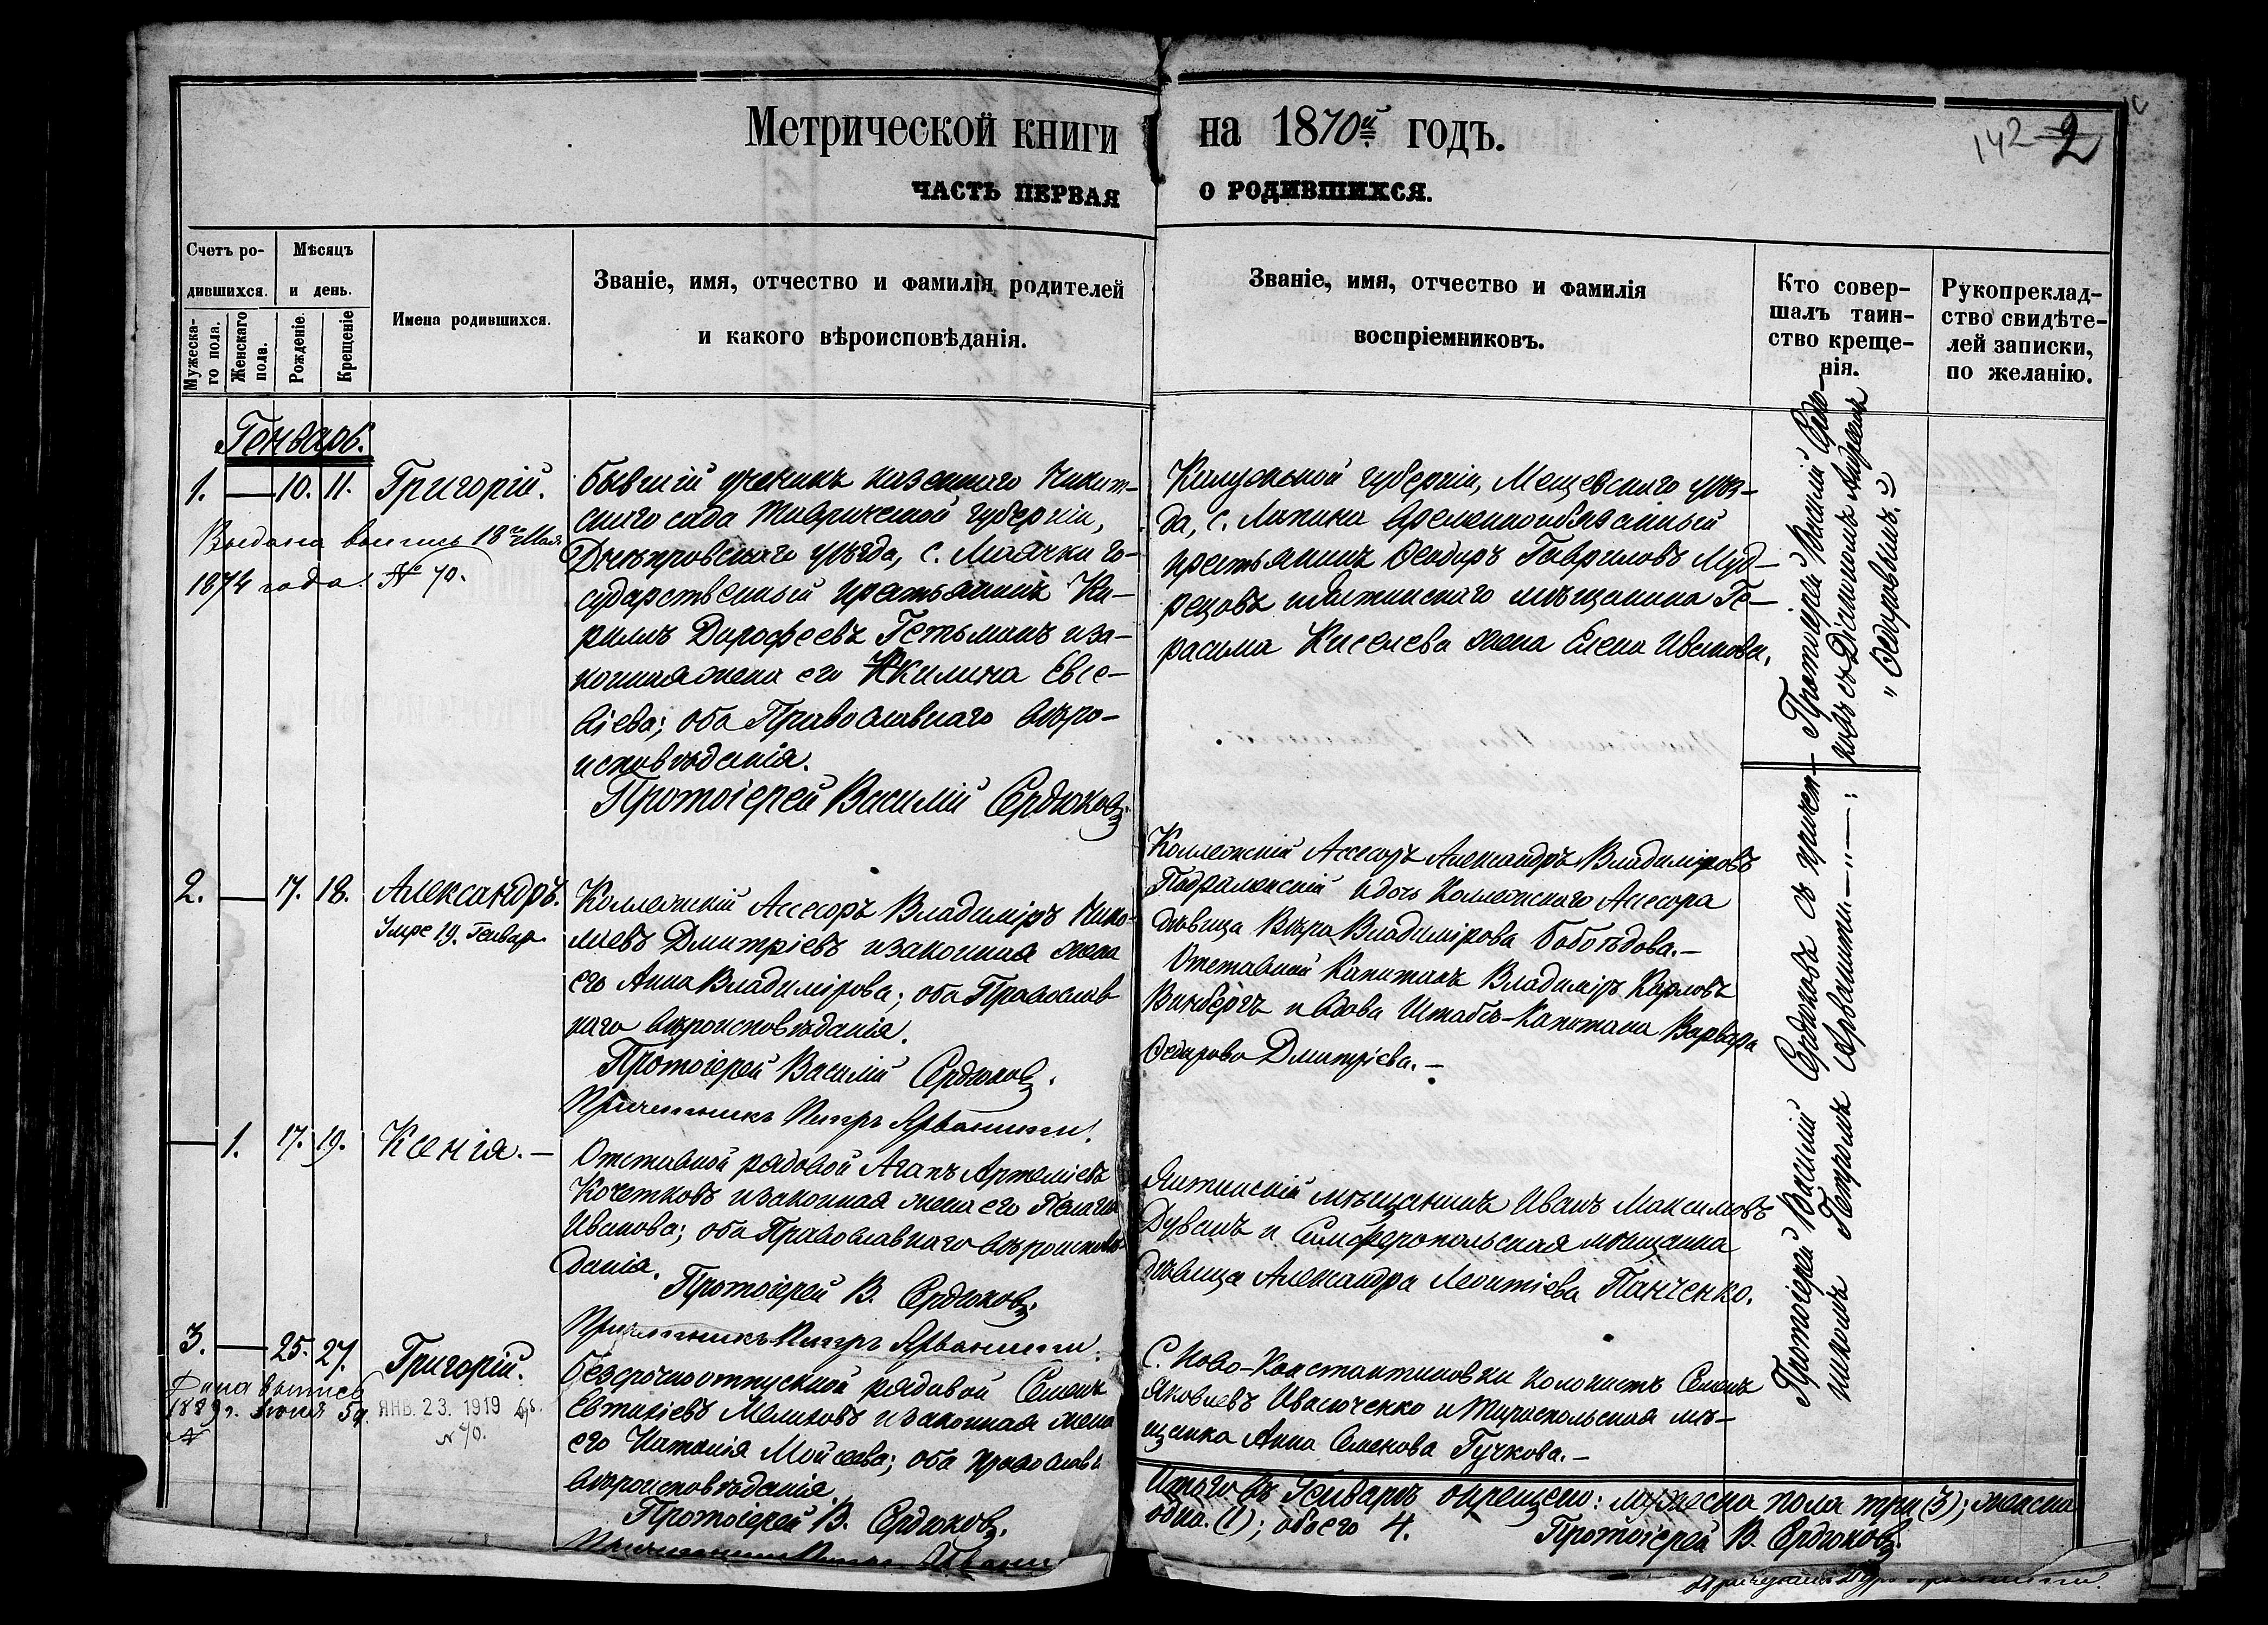 Метрической книги на 1870й годъ.
142 2
ЧАСТЬ ПЕРВАЯ О РОДИВШИХСЯ.
Счетъ ро-
дившихся.
Мужеска-
го пола.
Женскаго
пола.
Мѣсяцъ
и день.
Рожденіе.
Крещеніе
Имена родившихся.
Званіе, имя, отчество и фамилія родителей
и какого вѣроисповѣданія.
Званіе, имя, отчество и фамилія
воспріемниковъ.
Кто совер-
шалъ таин-
ство креще-
нія.
Рукопреклад-
ство свидѣте-
лей записки,
по желанію.
Генварь.
1. — 10. 11. Григорій.
Выдана выпись 18го Мая
1874 года. № 70.
Бывшій ученикъ казеннаго Никит-
скаго сада Таврической губерніи,
Днѣпровскаго уѣзда, с. Маячки го-
сударственный крестьянинъ Ки-
рилъ Дорофеевъ Гетьманъ и за-
конная жена его Акилина Евсе-
віева; оба Православнаго вѣро-
исповѣданія.
Протоіерей Василій Сердюковъ.
Калужской губерніи, Мещевскаго уѣз-
да, с. Лапина временнообязанный
крестьянинъ Ѳеодоръ Гавриловъ Муд-
рецовъ и Ялтинскаго мѣщанина Ге-
расима Киселева жена Елена Иванова.
Протоіерей Василій Сердю-
ковъ съ Діакономъ Андреемъ
Ѳедоровымъ.
2. — 17. 18. Александръ.
Умре 19. Генвар.
Коллежскій Ассесоръ Владиміръ Нико-
лаевъ Дмитріевъ и законная жена
его Анна Владимірова; оба Православ-
наго вѣроисповѣданія.
Протоіерей Василій Сердюковъ.
Причетникъ Петръ Арванити.
Коллежскій Ассесоръ Александръ Владиміровъ
и дочь Коллежскаго Ассесора
дѣвица Вѣра Владимірова Бобоѣдова.—
Отставной Капитанъ Владиміръ Карловъ
Винбергъ и вдова Штабсъ-Капитана Варвара
Ѳедорова Дмитріева.—
Протоіерей Василій Сердюковъ съ причет-
никомъ Петромъ Арванити.—"—"—.
— 1. 17. 19. Ксенія.—
Отставной рядовой Агапъ Артеміевъ
Кочетковъ и законная жена его Пелагія
Иванова; оба Православнаго вѣроисповѣ-
данія.
Протоіерей В. Сердюковъ.
Причетникъ Петръ Арванити.
Ялтинскій мѣщанинъ Иванъ Максимовъ
Дуванъ и Симферопольская мѣщанка
дѣвица Александра Леонтіева Панченко.
3. — 25. 27. Григорій.
Дана выпись
1889 г. Іюня 5 д.
ЯНВ. 23. 1919
№ 70.
Безсрочноотпускной рядовой Семенъ
Евтихіевъ Мелиховъ и законная жена
его Наталія Мойсеева; оба православн
вѣроисповѣданія.
Протоіерей В. Сердюковъ.
Причетникъ Петръ Арванити
С. Ново-Константиновки колонистъ Семенъ
Яковлевъ Иващенко и Тираспольская мѣ-
щанка Анна Семенова Гучкова.—
Итого въ Генварѣ окрещено: мужеска пола три (3); женска
одна. (1); обоего 4.
Протоіерей В. Сердюковъ.
Причетникъ Петръ Арванити.